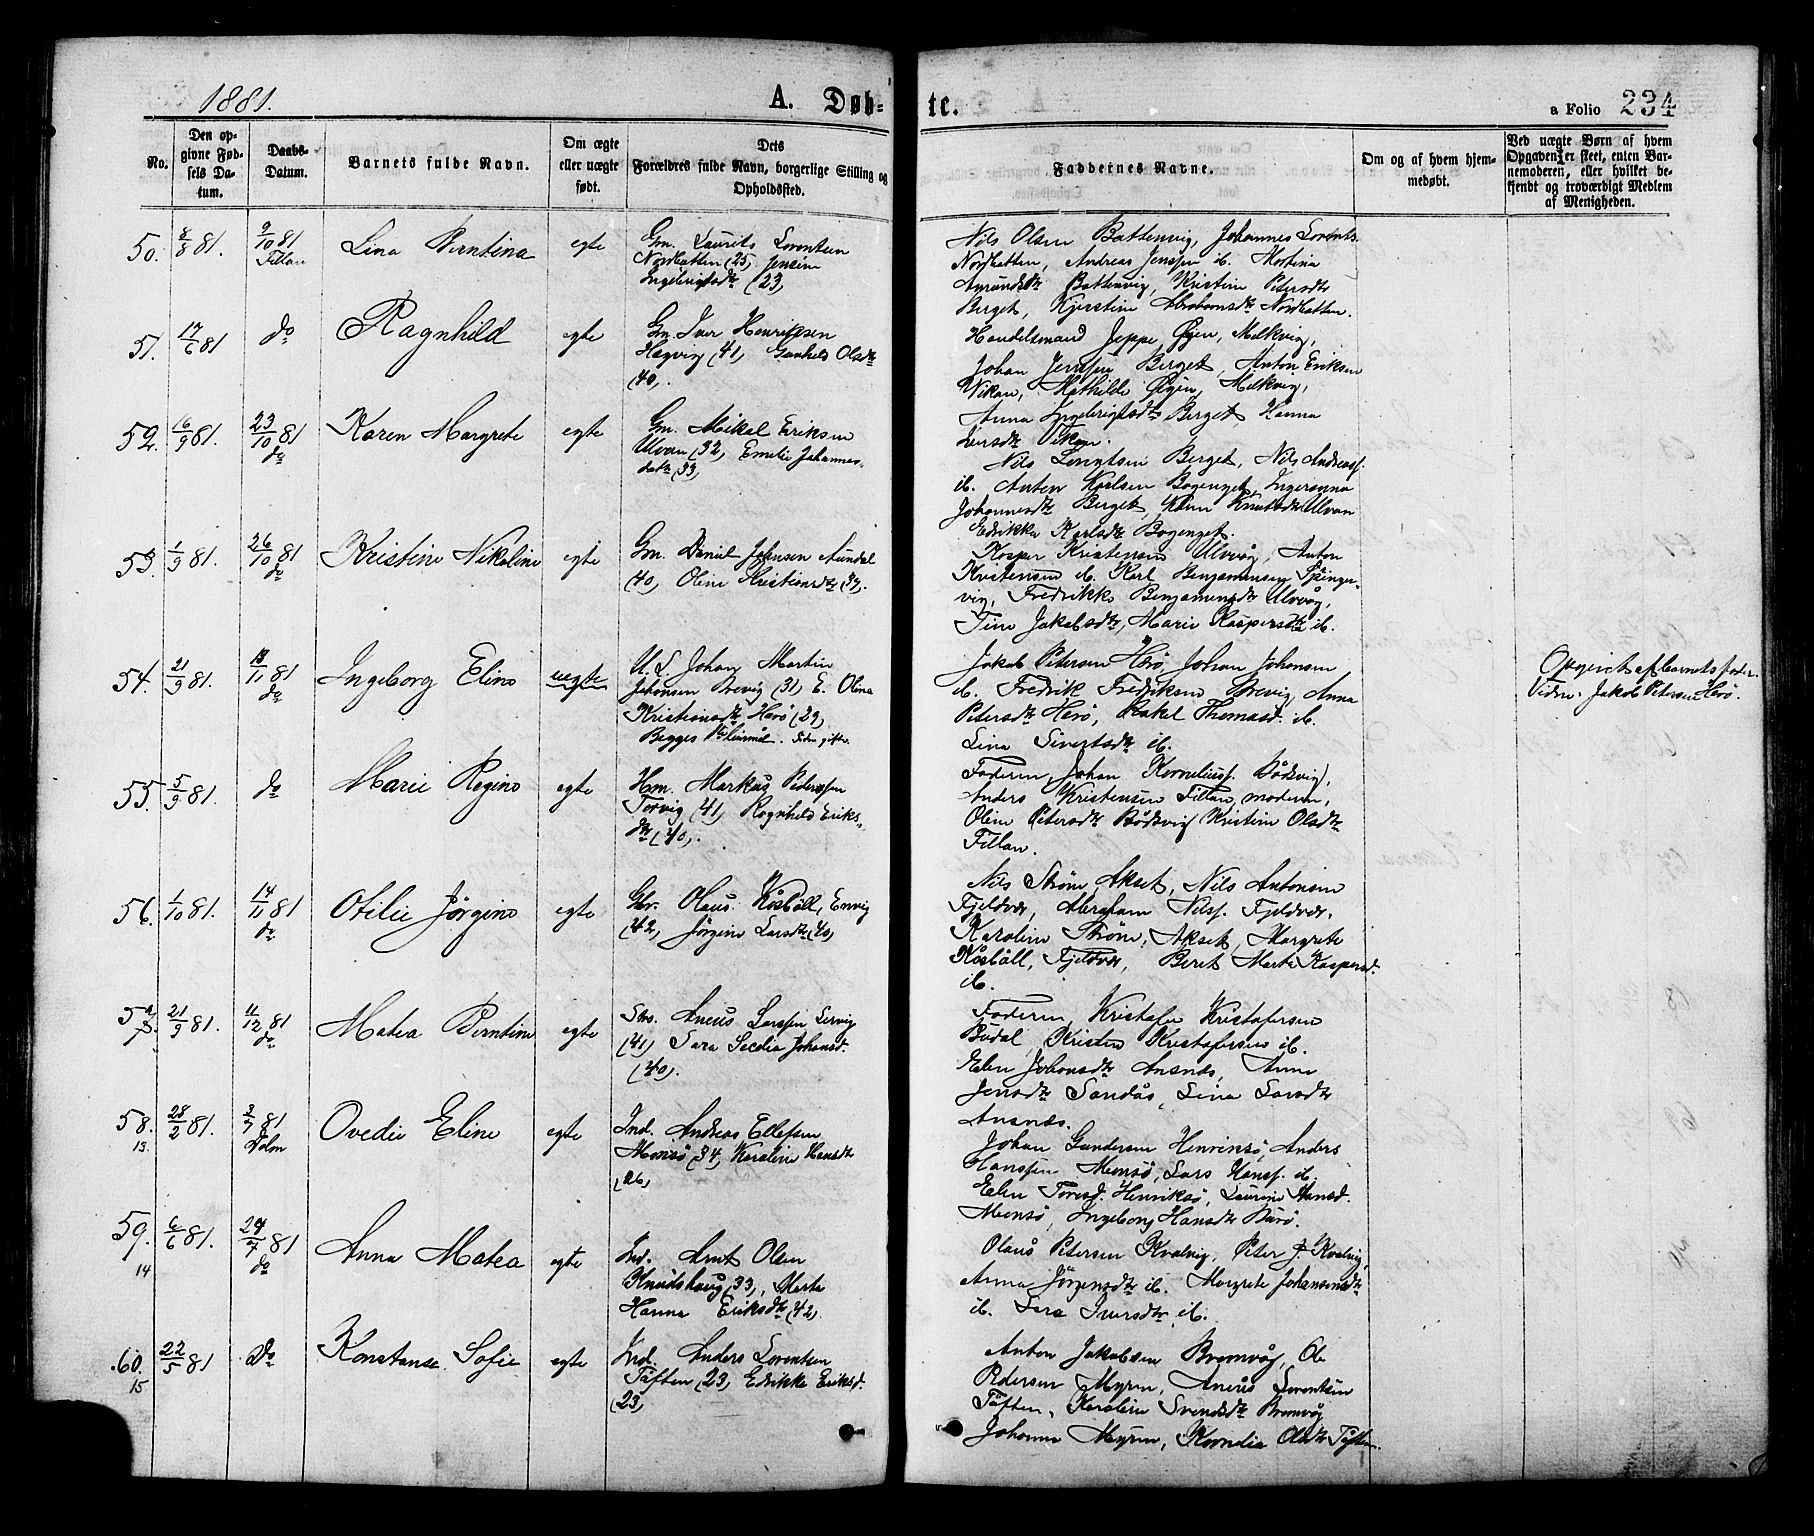 1881.
A. Døb-
te.
a Folio 234
No.
Den op-
givne Fød-
sels Da-
tum.
Daabs-
Datum.
Barnets fulde Navn.
Om ægte
eller uægte
født.
Dets
Forældres fulde Navn, borgerlige Stilling og
Opholdssted.
Faddernes Navne.
Om og af hvem hjem-
medøbt.
Ved uægte Børn af hvem
Opgaven er skeet, enten Bar-
nemoderen, eller hvilket be-
kjendt og troværdigt Medlem
af Menigheden.
50. 8/8 81. 9/10 81 Fillan
Lina Berntina
egte
Gm. Laurits Lorentsen
Nordbotten (25) Jensine
Ingebrigtsdtr (23)
Nils Olsen Battenvig, Johannes Lorents.
Nordbotten, Andreas Jenssen ib.
Battenvig, Kristine Petersdtr
Berget, Kjerstine Abrahamsdtr Nordbotten.
51. 17/6 81 do
Ragnhild
egte
Gm. Iver Henriksen
Hagvig (41) Gunhild Olsdtr
(40).
Handelsmand Jeppe Øyen, Melkvig,
Johan Jenssen Berget, Anton Eriksen
Vikan, Mathilde Øyen, Melkvig,
Anna Ingebrigtsdtr Berget Hanna
Iversdtr Vikan.
52. 16/9 81. 23/10 81 do
Karen Margrete
egte
Gm. Mikal Eriksen
Ulvan (32) Emelie Johannes-
datr (33)
Nils Lorntsen Berget, Nils Andreass.
ib. Anton Karlsen Bogenget, Ingeranna
Johannesdtr Berget, Knutsdtr Ulvan
Edrikka Karlsdtr Bogenget.
53. 1/9 81. 26/10 81 do
Kristine Nikoline
egte
Gm. Daniel Johnsen Aundal
(40) Oline Kristiansdtr (37).
Kasper Kristensen Ulvvåg, Anton
Kristensen ib. Karl Benjaminsen Springer-
vig, Fredrikke Benjaminsdtr Ulvvåg,
Tine Jakobsdtr, Marie Kaspersdtr ib.
54. 21/9 81. 13/11 81 do
Ingeborg Eline
uegte
U. S. Johan Martin
Johansen Brevig (31) E. Olina
Kristiansdtr Herö (29)
Begges
Jakob Petersen Herö, Johan Johansen
ib. Fredrik Fredriksen Brevig, Anna
Petersdtr Herö, Rakel Thomasd. ib.
Lina Sivertsdtr ib.
Opgivet af Barnets fader.
Vidne: Jakob Petersen Herö.
55. 5/9 81. do
Marie Regine
egte
Hm. Markus Pederssen
Torvig (41) Ragnhild Eriks-
dtr (40).
Faderen, Johan Korneliuss. Bådsvig,
Anders Kristensen Fillan, moderen,
Oline Petersdtr Bådsvig Kristine Olsdtr
Fillan.
56. 1/10 81. 14/11 81 do
Otilie Jörgine
egte
Gbr. Olaus Kosböll, Envig
(42) Jörgine Larsdtr (40)
Nils Ström Akset, Nils Antonsen
Fjeldvær, Abraham Nilss. Fjeldvær,
Karoline Ström, Akset, Margrete
Kosböll, Fjeldvær, Berit Marta Kaspersd.
ib.
57. 21/9 81. 4/12 81 do
Matea Berntine
egte
Strs. Aneus Larssen Lervig
(41) Sara Secelia Johansd.
(40).
Faderen, Kristofer Kristofersen
Budal, Kristen Kristofersen ib.
Elen Johansdtr Ansnes, Anne
Jensdtr Sandås, Lina Larsdtr
Ansnes.
58. 13. 28/2 81. 3/7 81 Dolm
Ovedie Eline
egte
Ind. Andreas Ellefsen
Monsö (34) Karoline Hansdtr
(26)
Johan Gundersen Henriksö, Anders
Hanssen Monsö, Lars Hanss. ib.
Elen Toresd. Henriksö, Laurine Hansd.
Monsö, Ingeborg Hansdtr Burö.
59. 14 6/6 81. 24/7 81 do
Anna Matea
egte
Ind. Arnt Olsen
Knudshaug (33), Marta
Hanna Eriksdtr (42)
Olaus Petersen Kvalvig, Peter J. Kvalvig,
Anna Jörgensdtr ib. Margrete Johansensdtr
ib. Sara Iversdtr ib.
60. 15 22/5 81 Do
Konstanse Sofie
egte
Ind. Anders Lorentsen
Tåften (23) Edrikke Eriksd.
(23)
Anton Jakobsen Bremvåg, Ole
Pedersen Myren, Aneus Lorentsen
Tåften, Karoline Svendsdtr Bremvåg
Johanna Myren, Kornelia Olsdtr Tåften.